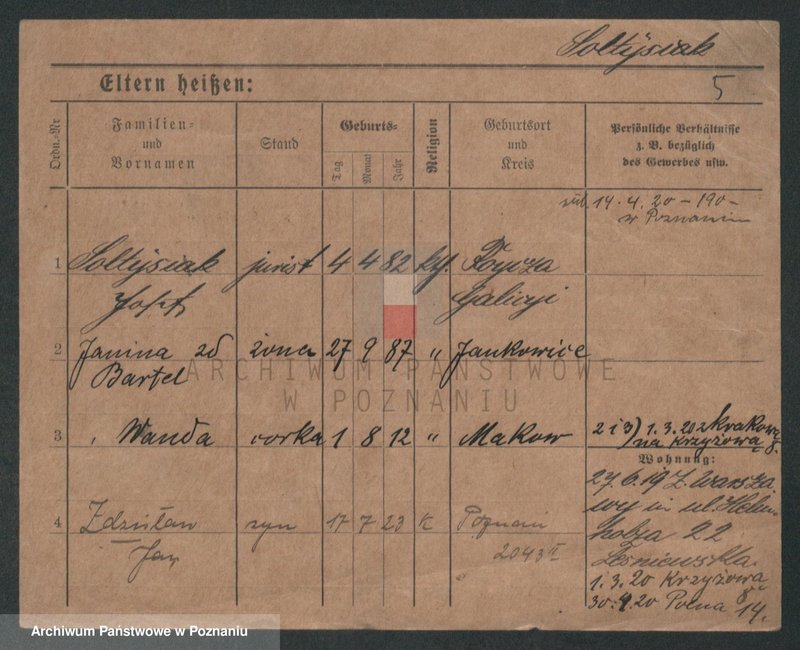 Sołtysiak
Eltern heißen:
5
Ordn.-Nr
Familien-
und
Vornamen
Stand
Geburts-
Tag
Monat
Jahr
Religion
Geburtsort
und
Kreis
Persönliche Verhältnisse
z. B. bezüglich
des Gewerbes usw.
14. 4. 20 - 190 -
w Poznaniu
1 Sołtysiak jurist 4 4 82
Józef Galicyi
2 Janina zd żona 27 9 87 " Jankowice
Bartel
3 Wanda corka 1 8 12 " Makow
2 i 3) 1. 3. 20 z Krakowa
na Krzyżową 8.
Wohnung:
27. 6. 19 z Warsza
wy ul. Helm
holza 22
Leśniewska.
1. 3. 20 Krzyżowa 8
30. 4. 20 Polna 14.
4 Zdzisław syn 17 7 23 k Poznań
Jan 2043 II
ARCHIWUM PAŃSTWOWE
W POZNANIU
Archiwum Państwowe w Poznaniu